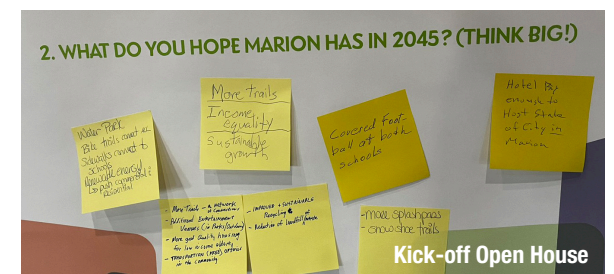 2. WHAT DO YOU HOPE MARION HAS IN 2045? (THINK BIG!)
Water Park
Bike trails connect all
Sidewalks connect to
schools
Renewable energy
to push commercial &
residential
More trails
Income
equality
Sustainable
growth
Covered Foot-
ball at both
schools
Hotel Big
enough to
Host State
of City in
Marion
- More Trails - & networks
& connections
- Additional Entertainment
Venues (in Parks/Outdoor)
- More good quality housing
for low income elderly
- TRANSPORTATION (FREE) OPTIONS
in the community
- IMPROVED & SUSTAINABLE
Recycling
- Reduction of landfill
- more splashpads
- snowshoe trails
Kick-off Open House